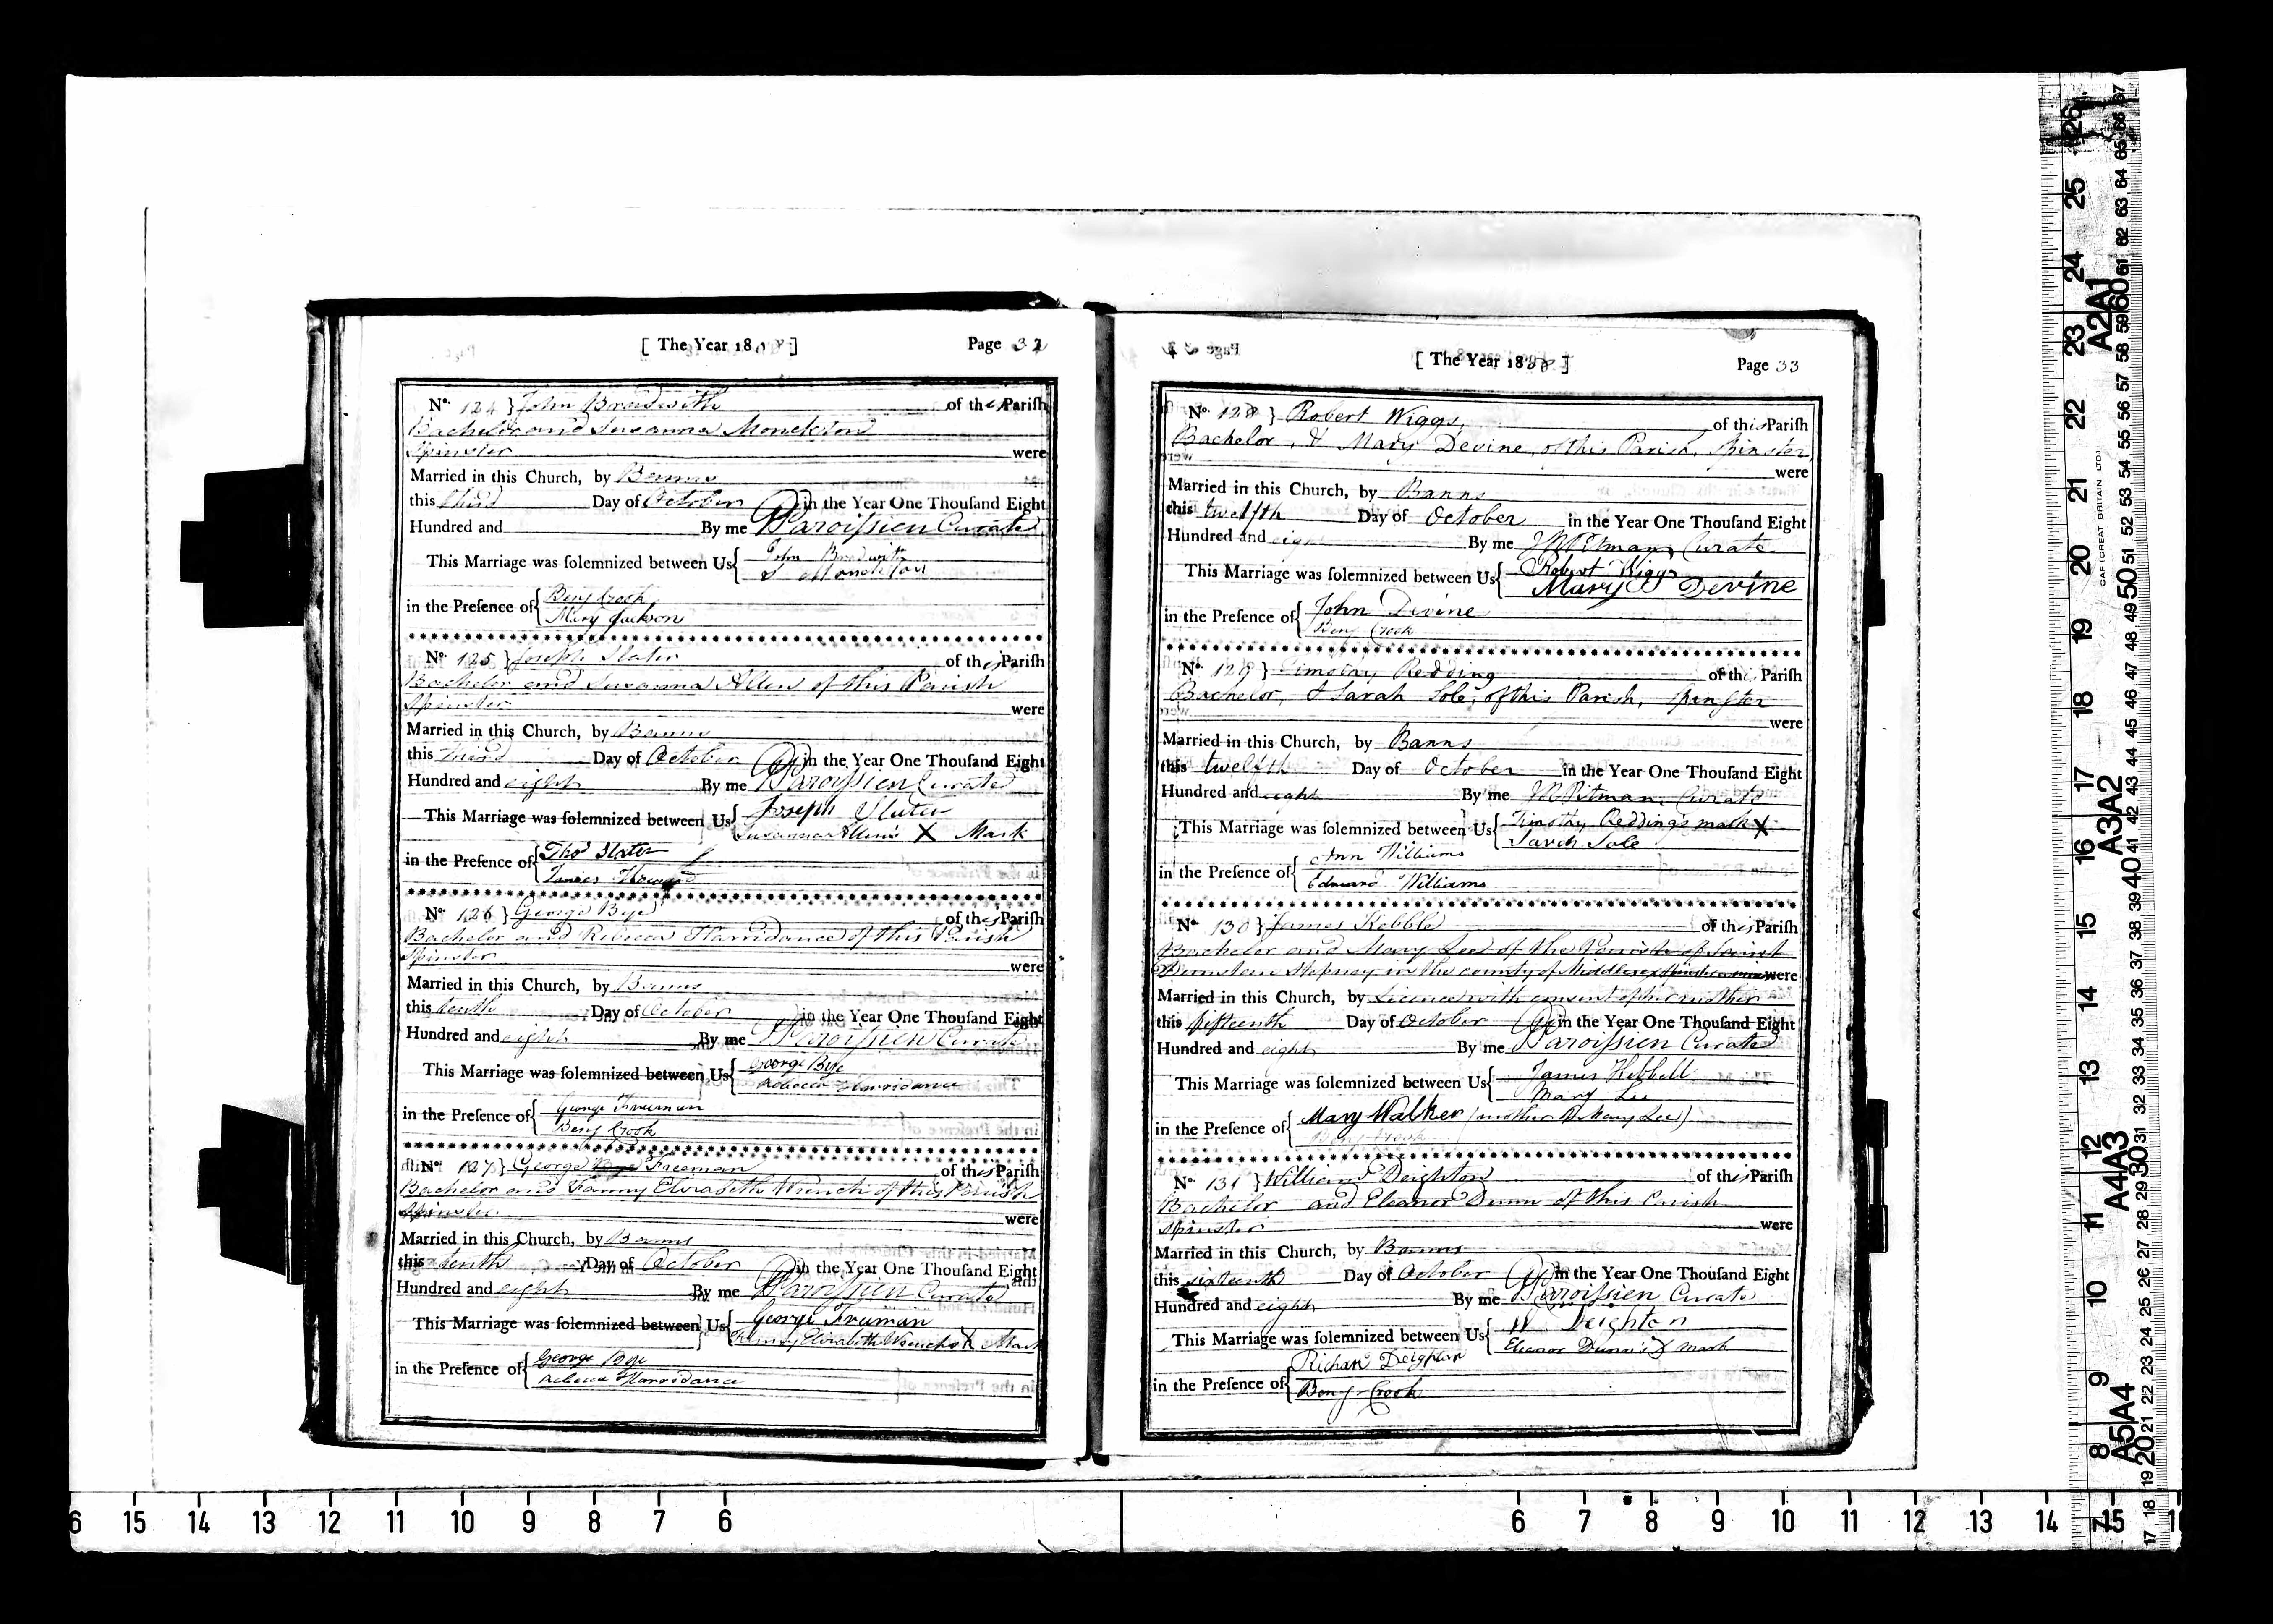 [ The Year 1808 ] Page 32
No. 124 } John Bradwith of this Parish
Bachelor and Susanna Monckton
Spinster were
Married in this Church, by Banns
this third Day of October in the Year One Thousand Eight
Hundred and By me Paroissien Curate
This Marriage was solemnized between Us { John Bradwith
S Monckton
in the Presence of { Benj Crook
Mary Jackson
No. 125 } Joseph Slater of this Parish
Bachelor and Susanna Allen of this Parish
Spinster were
Married in this Church, by Banns
this third Day of October in the Year One Thousand Eight
Hundred and eight By me Paroissien Curate
This Marriage was solemnized between Us { Joseph Slater
Susanna Allens X Mark
in the Presence of { Thos Slater
James
No. 126 } George Bye of this Parish
Bachelor and Rebecca Harridance of this Parish
Spinster were
Married in this Church, by Banns
this tenth Day of October in the Year One Thousand Eight
Hundred and eight By me Paroissien Curate
This Marriage was solemnized between Us { George Bye
Rebecca Harridance
in the Presence of { George Freeman
Benj Crook
No. 127 } George Bye Freeman of this Parish
Bachelor and Fanny Elizabeth Wrench of this Parish
Spinster were
Married in this Church, by Banns
this tenth Day of October in the Year One Thousand Eight
Hundred and eight By me Paroissien Curate
This Marriage was solemnized between Us { George Freeman
Fanny Elizabeth Wrenchs X Mark
in the Presence of { George Bye
Rebecca Harridance
[ The Year 1808 ] Page 33
No. 128 } Robert Wiggs, of this Parish
Bachelor, & Mary Devine, of this Parish, Spinster,
were
Married in this Church, by Banns
this twelfth Day of October in the Year One Thousand Eight
Hundred and eight By me J R Pitman, Curate
This Marriage was solemnized between Us { Robert Wiggs
Mary Devine
in the Presence of { John Devine
Benj Crook
No. 129 } Timothy Redding of this Parish
Bachelor, & Sarah Sole, of this Parish, Spinster
were
Married in this Church, by Banns
this twelfth Day of October in the Year One Thousand Eight
Hundred and eight By me J R Pitman, Curate
This Marriage was solemnized between Us { Timothy Redding's mark X
Sarah Sole
in the Presence of { Ann Williams
Edward Williams
No. 130 } James Kebble of this Parish
Bachelor and Mary Lee of the Parish of Saint
Dunstan Stepney in the county of Middlesex Spinster a minor were
Married in this Church, by Licence with consent of her mother
this fifteenth Day of October in the Year One Thousand Eight
Hundred and eight By me Paroissien Curate
This Marriage was solemnized between Us { James Kebbell
Mary Lee
in the Presence of { Mary Walker (mother of Mary Lee)
Benj Crook
No. 131 } William Deighton of this Parish
Bachelor and Eleanor Dunn of this Parish
Spinster were
Married in this Church, by Banns
this sixteenth Day of October in the Year One Thousand Eight
Hundred and eight By me Paroissien Curate
This Marriage was solemnized between Us { W Deighton
Eleanor Dunn's X mark
in the Presence of { Richard Deighton
Benj Crook